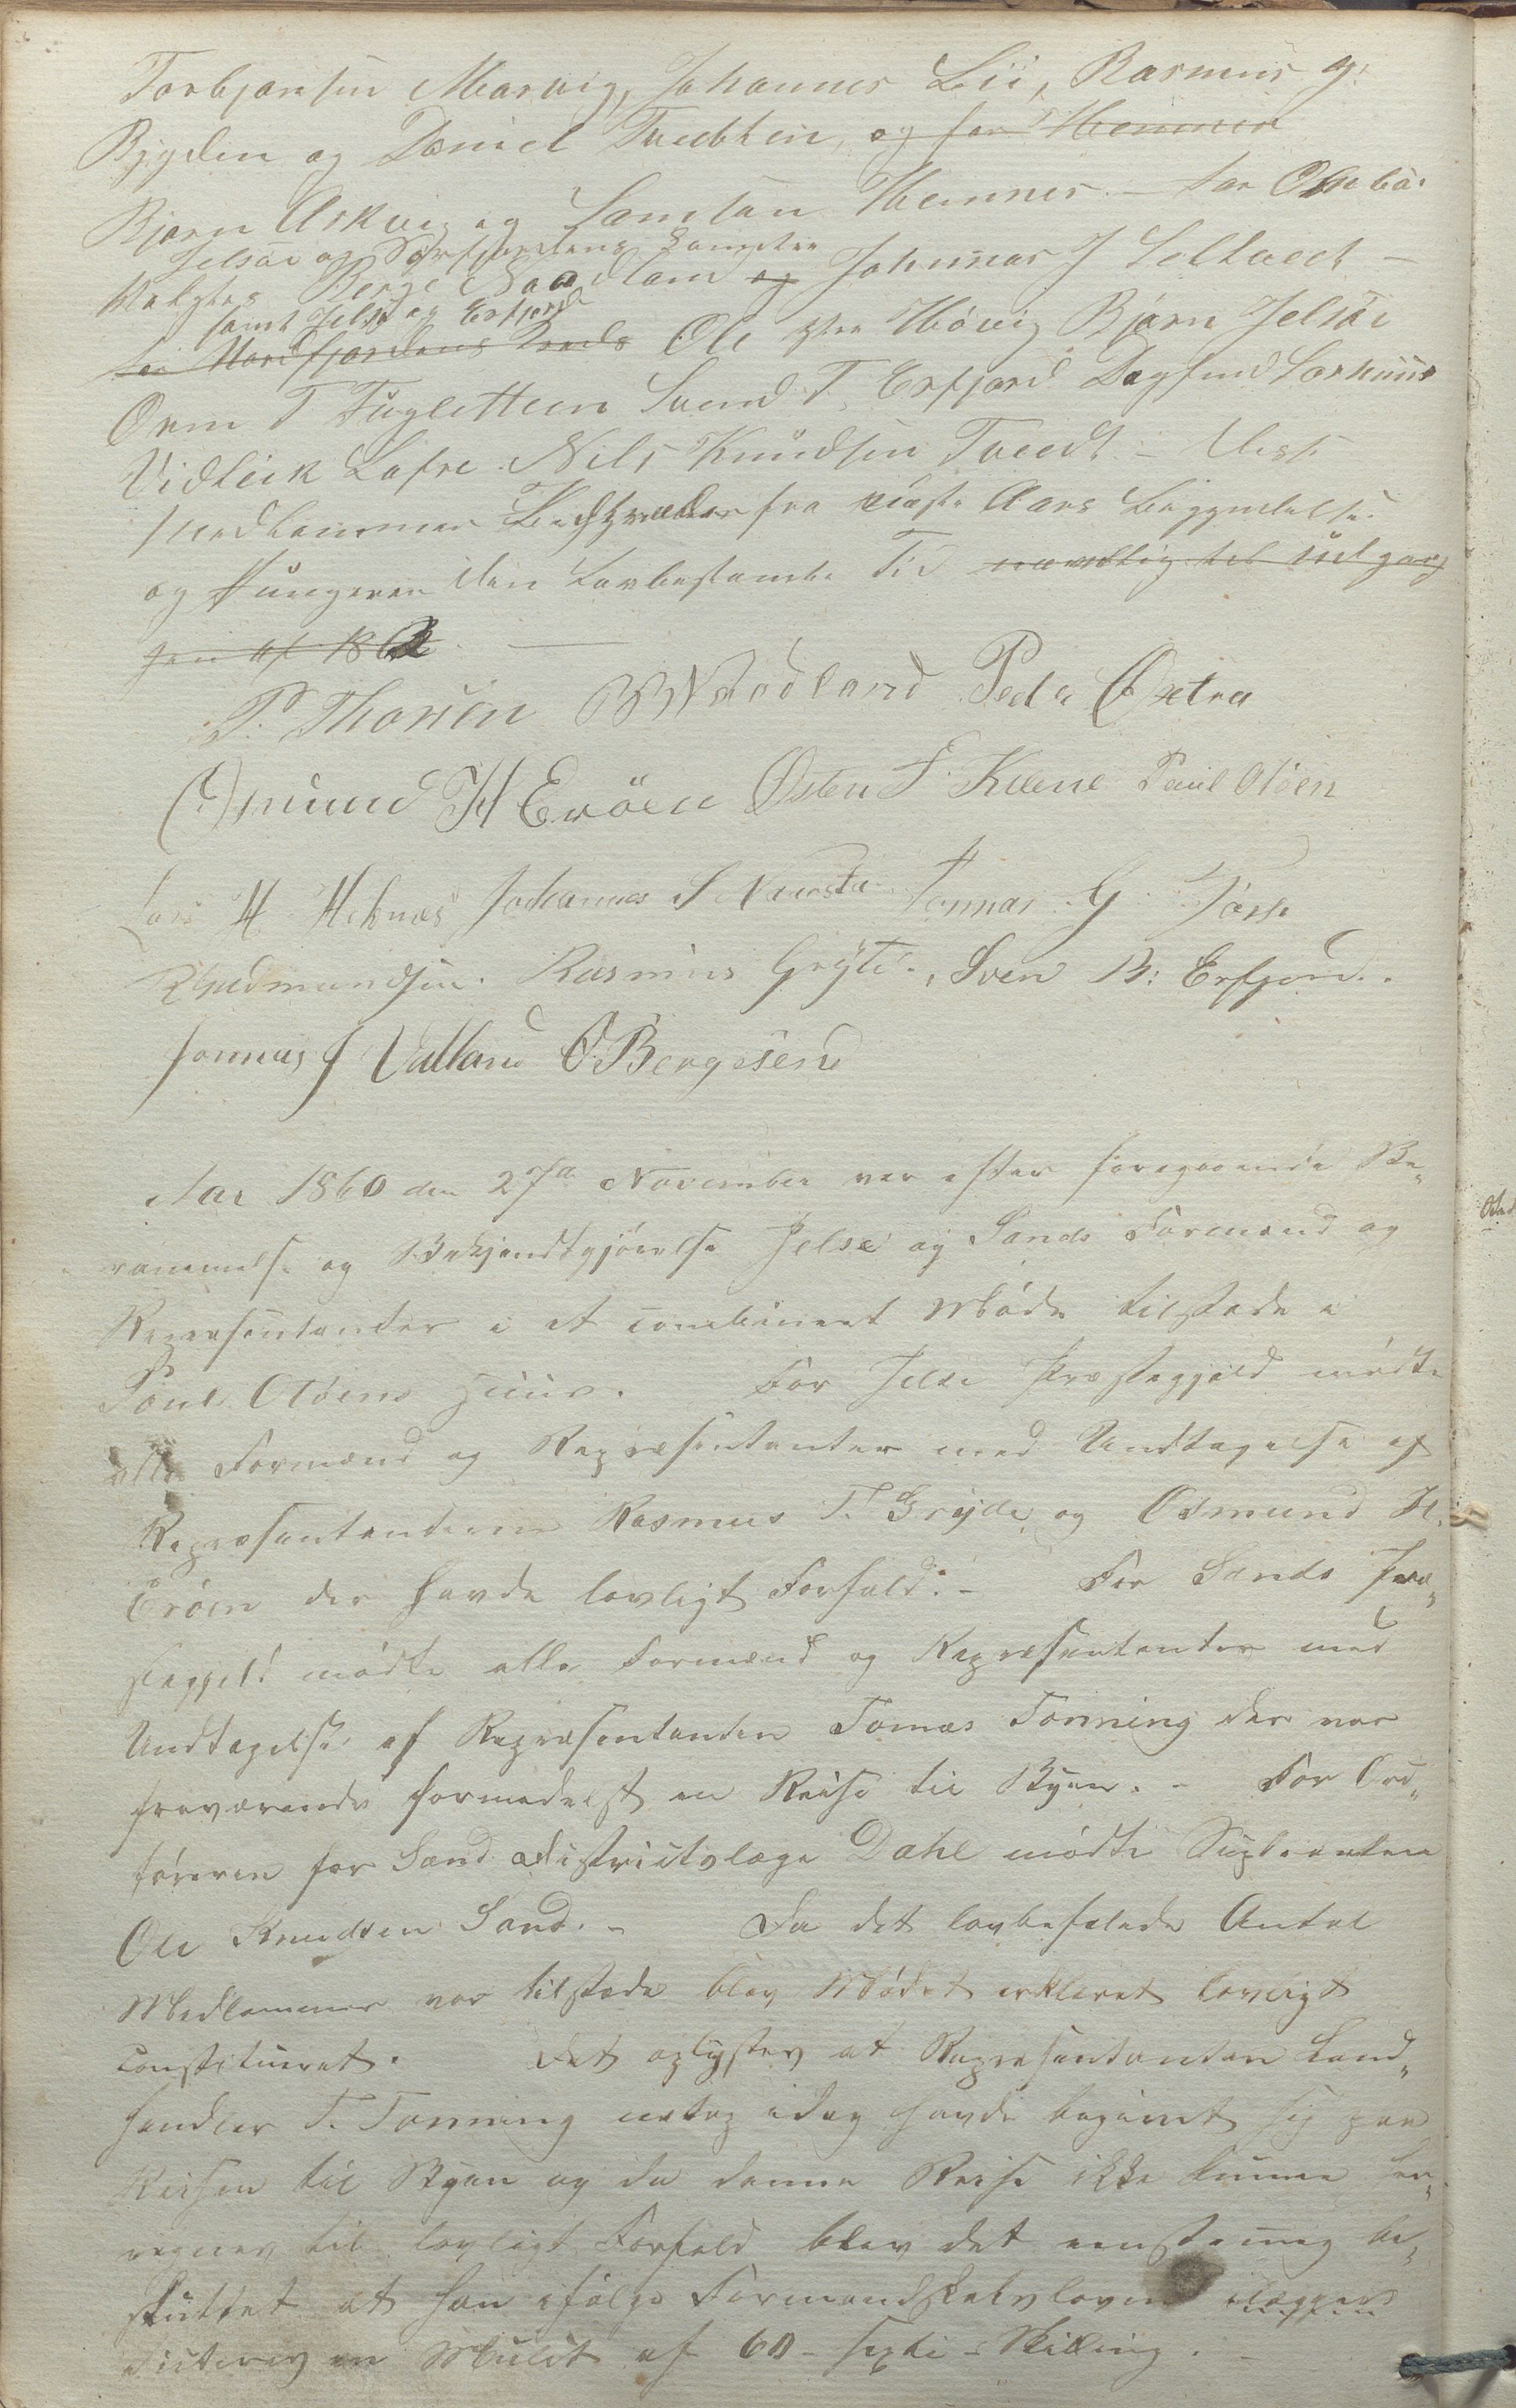 Torbjørnsen Marvig, Johannes Lii, Rasmus G:
Bjgden og Daniel Tvedtten, og for Hennes
Bjørn Askvig og Samson Hennes. – For
Jelsøe og Sørfjordens
valgtes Berge Naadland og Johannes J Selland –
samt Jelse og Erfjord
for Nordfjordens Kreds Ole Høivig Bjørn Jelsøe
Orm T Fuglesteen Svend T. Erfjord Dagfind Sørhuus
Vidleik Lafre Nils Knudsen Tvedt. – Disse
Medlemmer fra næste Aars Begyndelse
og fungerer den Lovbestemte Tid nemlig til Udgang
gen af 1862.
P. Thorsen B Naadland Peder Østra
Osmund H Erøen Østen S. Kvene Paul Oløen
Lars H. Hebnes Johannes S Naersta Tonnas G. Foss
R Gudmundsen. Rasmus Gryte., Sven B: Erfjord.
Jonnas J Valland O. Bergesen
Aar 1860 den 27de November var efter foregaaende Be„
rammelse og Bekjendtgjørelse Jelse og Sands Formænd og
Repræsentanter i et combineret Møde tilstede i
Poul Oløens Huus. For Jelse Præstegjæld mødte
alle Formænd og Repræsentanter med Undtagelse af
Repræsentanterne Rasmus T. Gryde og Osmund H.
Erøen der havde lovligt Forfald. – For Sands Præ„
stegjeld mødte alle Formænd og Repræsentanter med
Undtagelse af Repræsentanten Tomas Tonning der var
fraværende formedelst en Reise til Byen. – For Ord„
føreren for Sand Districtslæge Dahl mødte Supleanten
Ole Knudsen Sand. – Da det lovbefalede Antal
Medlemmer var tilstede blev Mødet erklæret lovligt
constitueret. Det oplystes at Repræsentanten Land„
handler T. Tonning netop idag havde begivet sig paa
Reisen til Byen og da denne Reise ikke kunne hen„
regnes til lovligt Forfald blev det eenstemmig be„
sluttet at han ifølge Formandskabsloven ilægges
en Mulct af 60 – sexti – Skilling. –